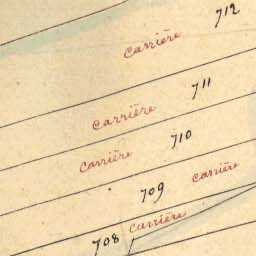 712
Carrière
711
Carrière
710
Carrière
Carrière
709
Carrière
708